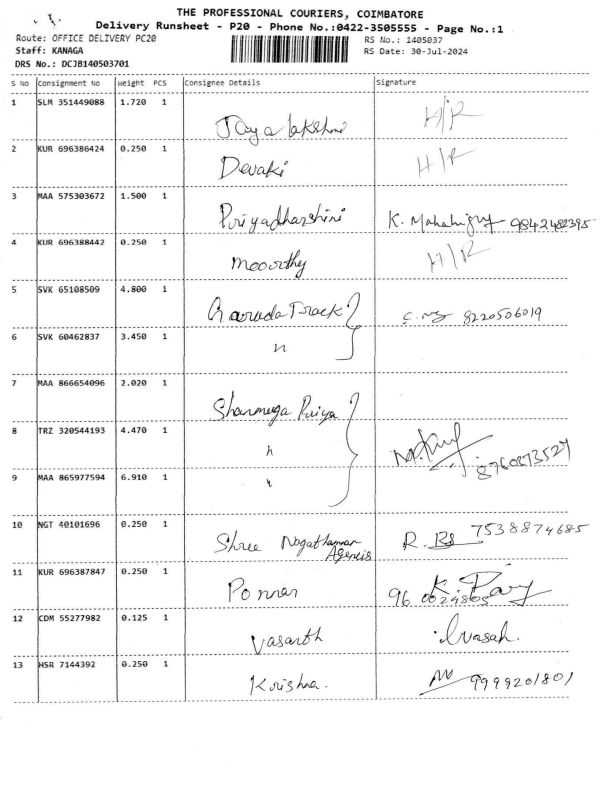 THE PROFESSIONAL COURIERS, COIMBATORE
Delivery Runsheet - P20 - Phone No.:0422-3505555 - Page No.:1
Route: OFFICE DELIVERY PC20
RS No.: 1405037
Staff: KANAGA
RS Date: 30-Jul-2024
DRS No.: DCJB140503701
S No Consignment No Weight PCS Consignee Details Signature
1 SLM 351449088 1.720 1
Jayalakshmi H/R
2 KUR 696386424 0.250 1
Devaki H/R
3 MAA 575303672 1.500 1
Priyadharshini K. 9842482395
4 KUR 696388442 0.250 1
Moorthy H/R
5 SVK 65108509 4.800 1
Garuda Track 8220506019
6 SVK 60462837 3.450 1
"
7 MAA 866654096 2.020 1
Shanmuga Priya
8 TRZ 320544193 4.470 1
" 8760873527
9 MAA 865977594 6.910 1
"
10 NGT 40101696 0.250 1
Shree Nagathamman Agencis R. 7538874685
11 KUR 696387847 0.250 1
Ponnan K.
12 CDM 55277982 0.125 1
Vasanth
13 HSR 7144392 0.250 1
Krishna. 9999201801